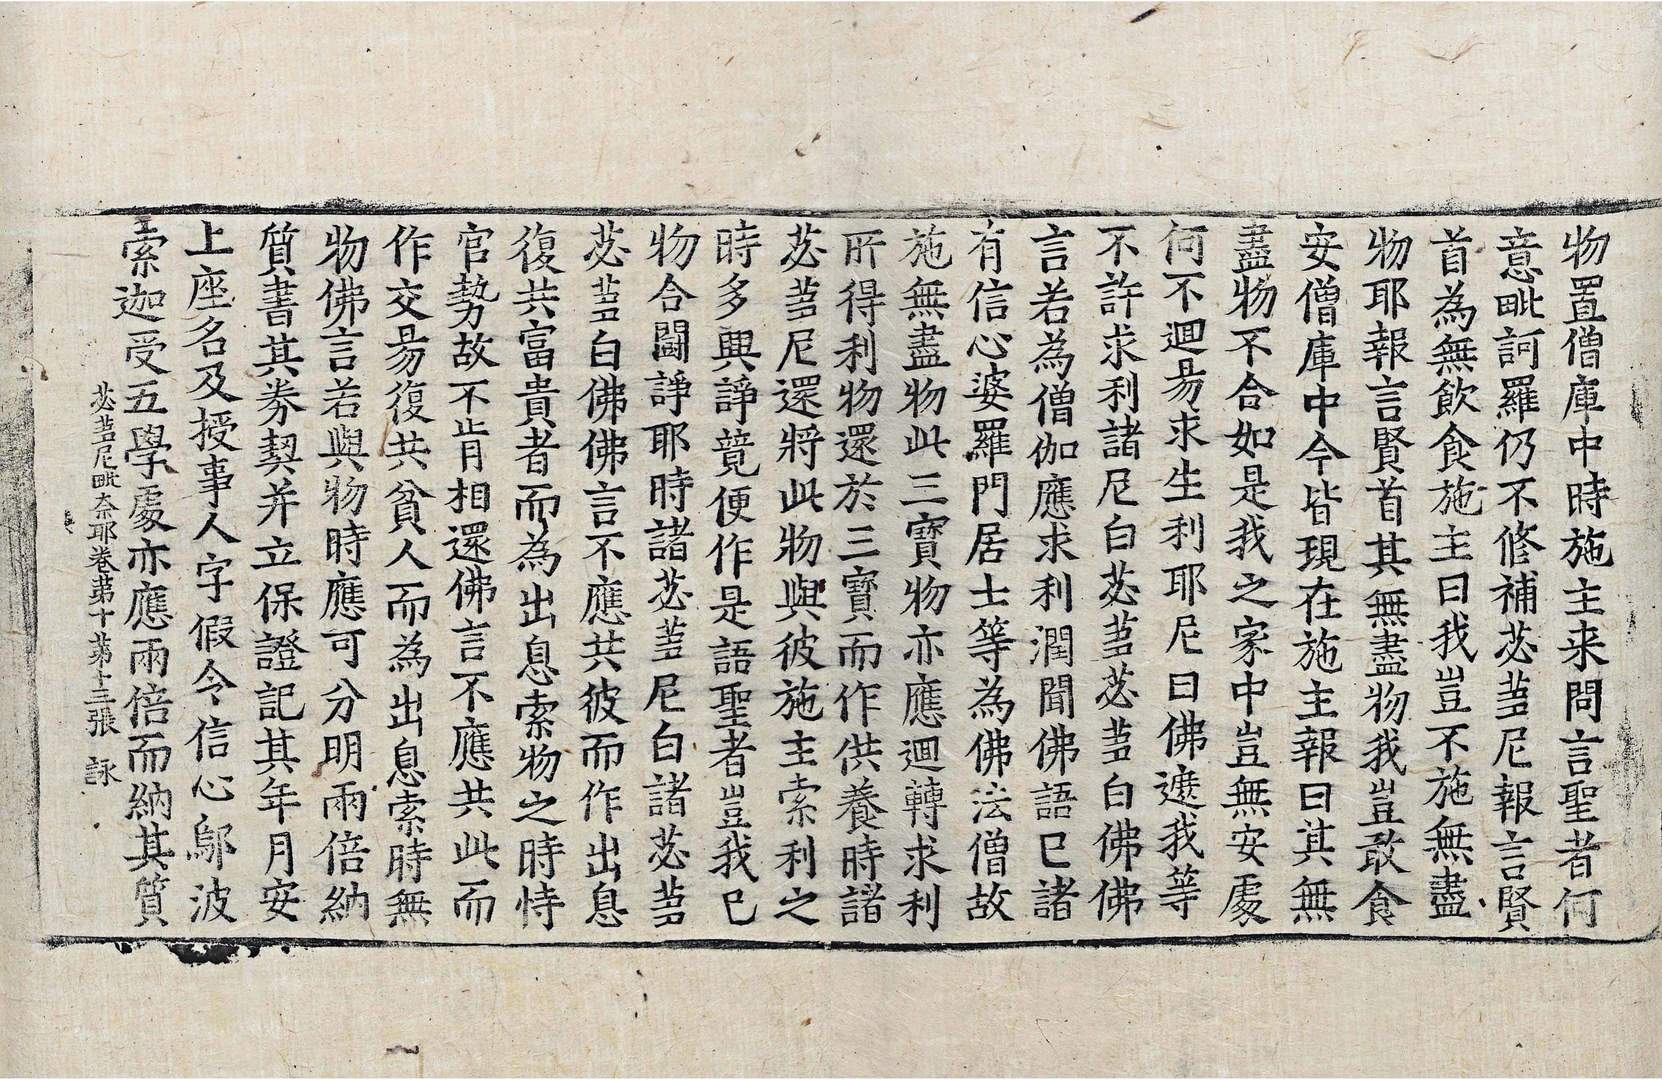 物置僧庫中時施主来問言聖者何
意毗訶羅仍不修補苾芻尼報言賢
首為無飲食施主曰我豈不施無盡
物耶報言賢首其無盡物我豈敢食
安僧庫中今皆現在施主報曰其無
盡物不合如是我之家中豈無安處
何不迴易求生利耶尼曰佛遮我等
不許求利諸尼白苾芻苾芻白佛佛
言若為僧伽應求利潤聞佛語已諸
有信心婆羅門居士等為佛法僧故
施無盡物此三寶物亦應迴轉求利
所得利物還於三寶而作供養時諸
苾芻尼還將此物與彼施主索利之
時多興諍競便作是語聖者豈我已
物合鬪諍耶時諸苾芻尼白諸苾芻
苾芻白佛佛言不應共彼而作出息
復共富貴者而為出息索物之時恃
官勢故不肯相還佛言不應共此而
作交易復共貧人而為出息索時無
物佛言若與物時應可分明兩倍納
質書其券契并立保證記其年月安
上座名及授事人字假令信心鄔波
索迦受五學處亦應兩倍而納其質
苾芻尼毗奈耶卷第十　第十三張　詠